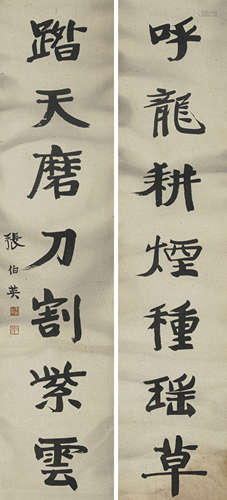 呼龍耕煙種瑶草
踏天磨刀割紫雲
張伯英